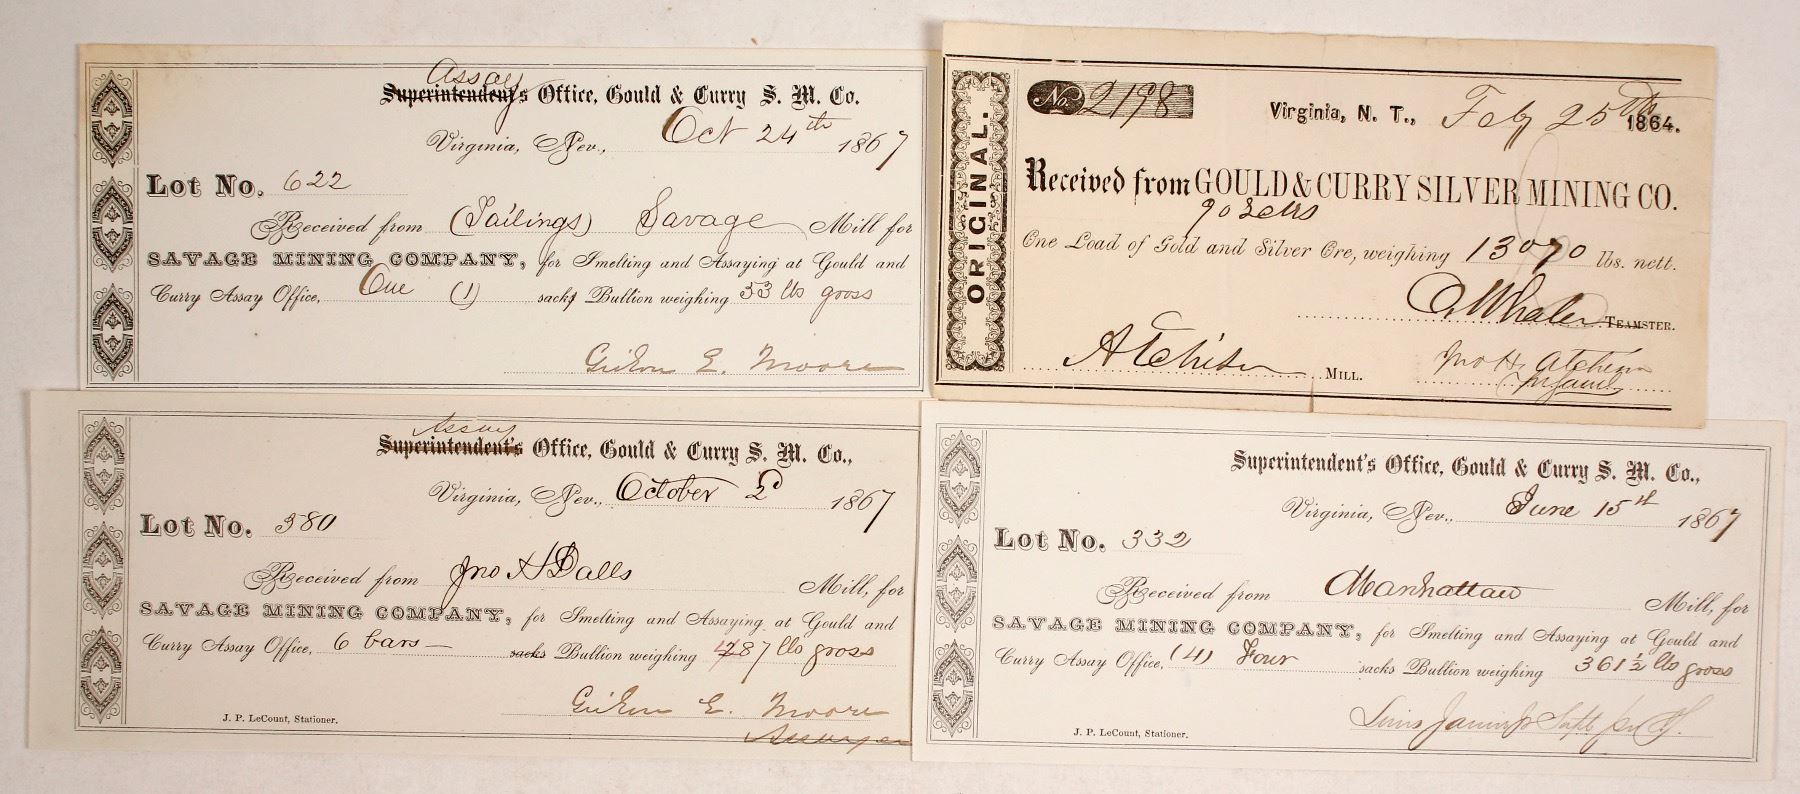 Assay
Superintendent's Office, Gould & Curry S. M. Co.
Virginia, Nev., Oct 24th 1867
Lot No. 622
Received from (Tailings) Savage Mill for
SAVAGE MINING COMPANY, for Smelting and Assaying at Gould and
Curry Assay Office, One (1) sacks Bullion weighing 53 lbs gross
E. Moore
ORIGINAL.
No. 2198
Virginia, N. T., Feb 25th 1864.
Received from GOULD & CURRY SILVER MINING CO.
One Load of Gold and Silver Ore, weighing 13070 lbs. nett.
TEAMSTER.
Atchison MILL.
Jno H. Atchison
Assay
Superintendent's Office, Gould & Curry S. M. Co.,
Virginia, Nev., October 2d 1867
Lot No. 380
Received from Jno H Dalls Mill, for
SAVAGE MINING COMPANY, for Smelting and Assaying at Gould and
Curry Assay Office, 6 bars — sacks Bullion weighing 487 lbs gross
E. Moore
Assayer
J. P. LeCount, Stationer.
Superintendent's Office, Gould & Curry S. M. Co.,
Virginia, Nev., June 15th 1867
Lot No. 332
Received from Manhattan Mill, for
SAVAGE MINING COMPANY, for Smelting and Assaying at Gould and
Curry Assay Office, (4) Four sacks Bullion weighing 361 1/2 lbs gross
Louis Janin Jr Supt
J. P. LeCount, Stationer.